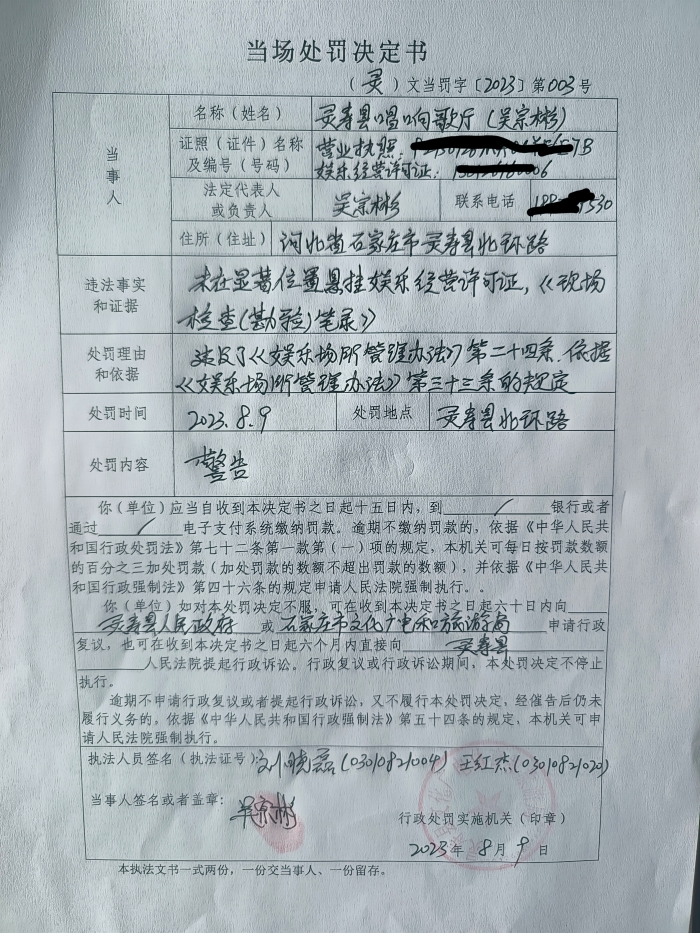 当场处罚决定书
（灵）文当罚字〔2023〕第003号
当事人
名称（姓名） 灵寿县唱响歌厅（吴宗彬）
证照（证件）名称及编号（号码）
营业执照：
娱乐经营许可证：
法定代表人或负责人 吴宗彬 联系电话
住所（住址） 河北省石家庄市灵寿县北环路
违法事实和证据
未在显著位置悬挂娱乐经营许可证，《现场
检查（勘验）笔录》
处罚理由和依据
违反了《娱乐场所管理办法》第二十四条，依据
《娱乐场所管理办法》第三十三条的规定
处罚时间 2023.8.9 处罚地点 灵寿县北环路
处罚内容 警告
你（单位）应当自收到本决定书之日起十五日内，到 / 银行或者
通过 / 电子支付系统缴纳罚款。逾期不缴纳罚款的，依据《中华人民共
和国行政处罚法》第七十二条第一款第（一）项的规定，本机关可每日按罚款数额
的百分之三加处罚款（加处罚款的数额不超出罚款的数额），并依据《中华人民共
和国行政强制法》第四十六条的规定申请人民法院强制执行。。
你（单位）如对本处罚决定不服，可在收到本决定书之日起六十日内向
灵寿县人民政府 或 石家庄市文化广电和旅游局 申请行政
复议，也可在收到本决定书之日起六个月内直接向 灵寿县
人民法院提起行政诉讼。行政复议或行政诉讼期间，本处罚决定不停止
执行。
逾期不申请行政复议或者提起行政诉讼，又不履行本处罚决定，经催告后仍未
履行义务的，依据《中华人民共和国行政强制法》第五十四条的规定，本机关可申
请人民法院强制执行。
执法人员签名（执法证号）：刘晓磊（03010821004） 王红杰（03010821020）
当事人签名或者盖章：吴宗彬
行政处罚实施机关（印章）
2023年8月9日
本执法文书一式两份，一份交当事人、一份留存。